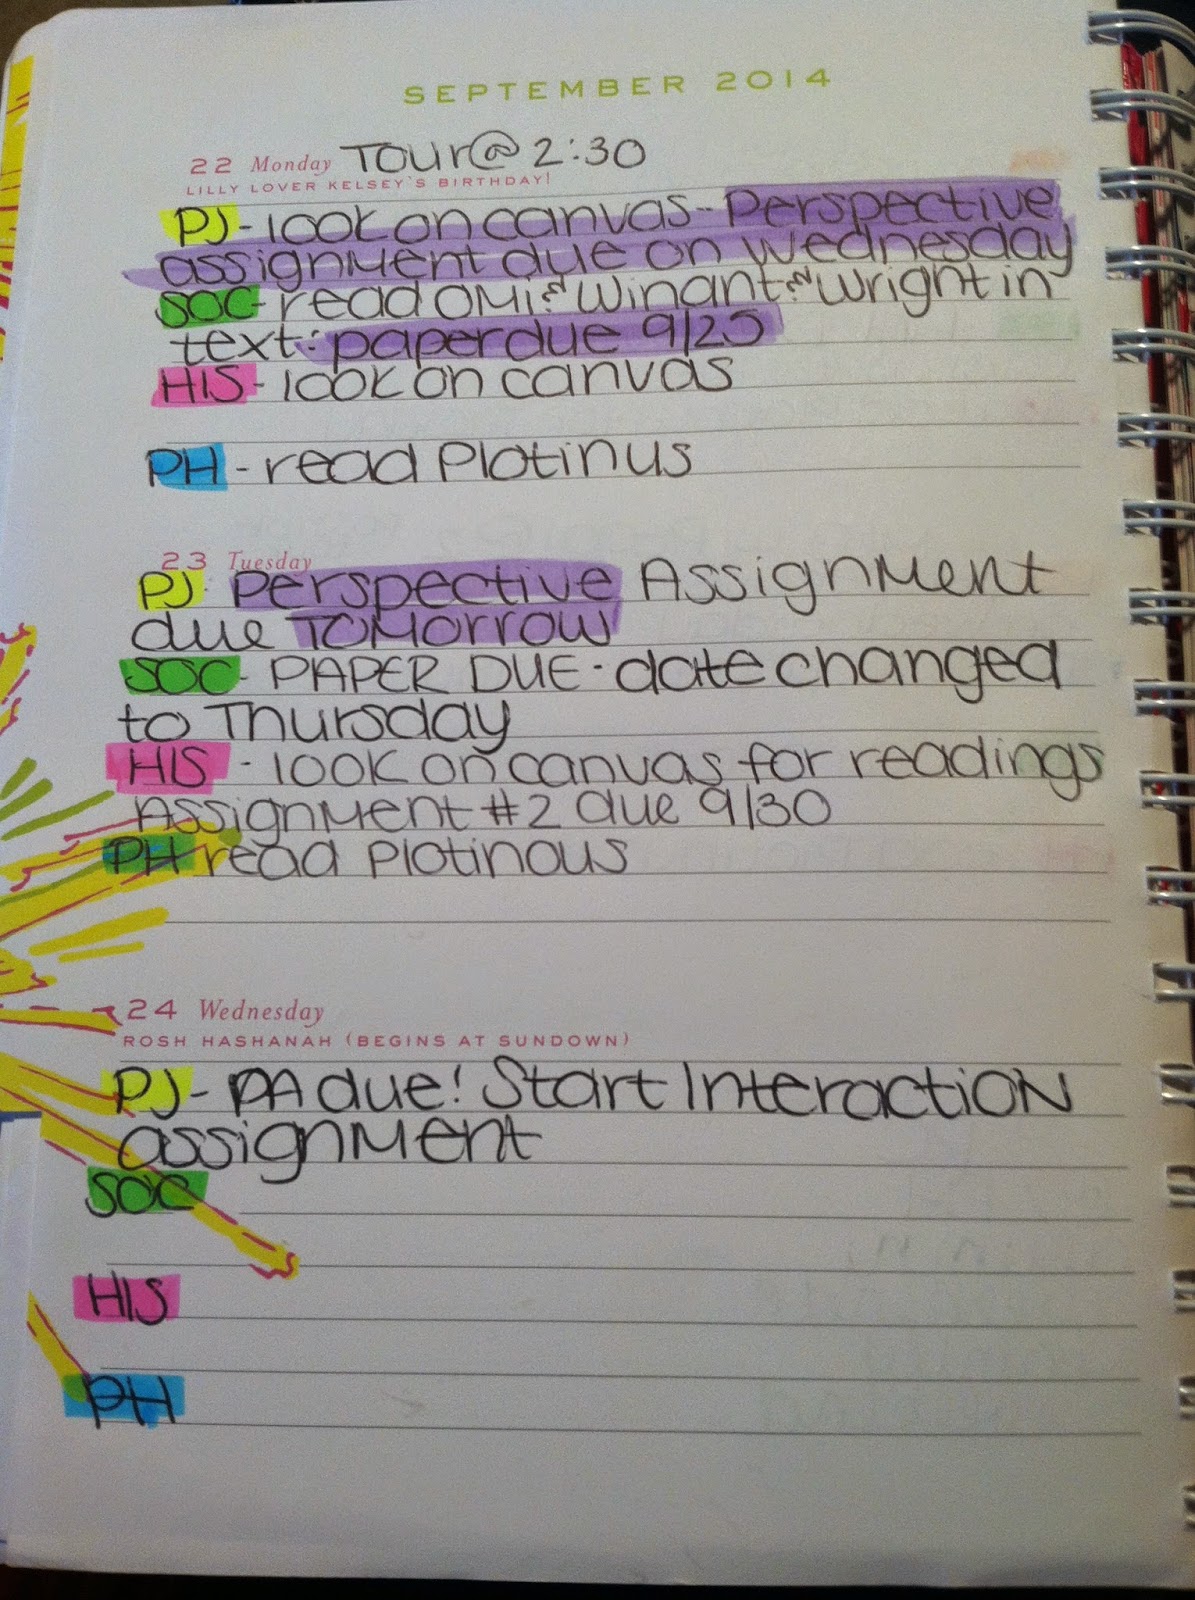 SEPTEMBER 2014
22 Monday TOUR@ 2:30
LILLY LOVER KELSEY'S BIRTHDAY!
PJ - look on canvas - Perspective
assignment due on Wednesday
SOC - read OMI & Winant & Wright in
text: paper due 9/25
HIS - look on canvas
PH - read Plotinus
23 Tuesday
PJ: Perspective Assignment
due TOMORROW
SOC - PAPER DUE - date changed
to Thursday
HIS - look on canvas for readings
Assignment #2 due 9/30
PH read Plotinous
24 Wednesday
ROSH HASHANAH (BEGINS AT SUNDOWN)
PJ - PA due! Start Interaction
assignment
SOC
HIS
PH